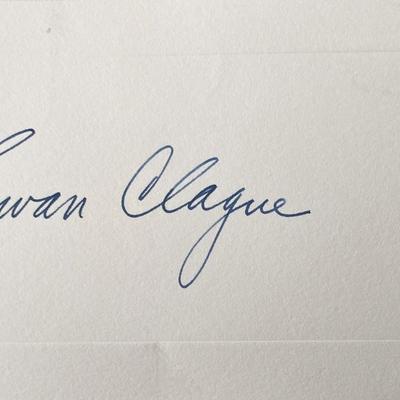 Ewan Clague